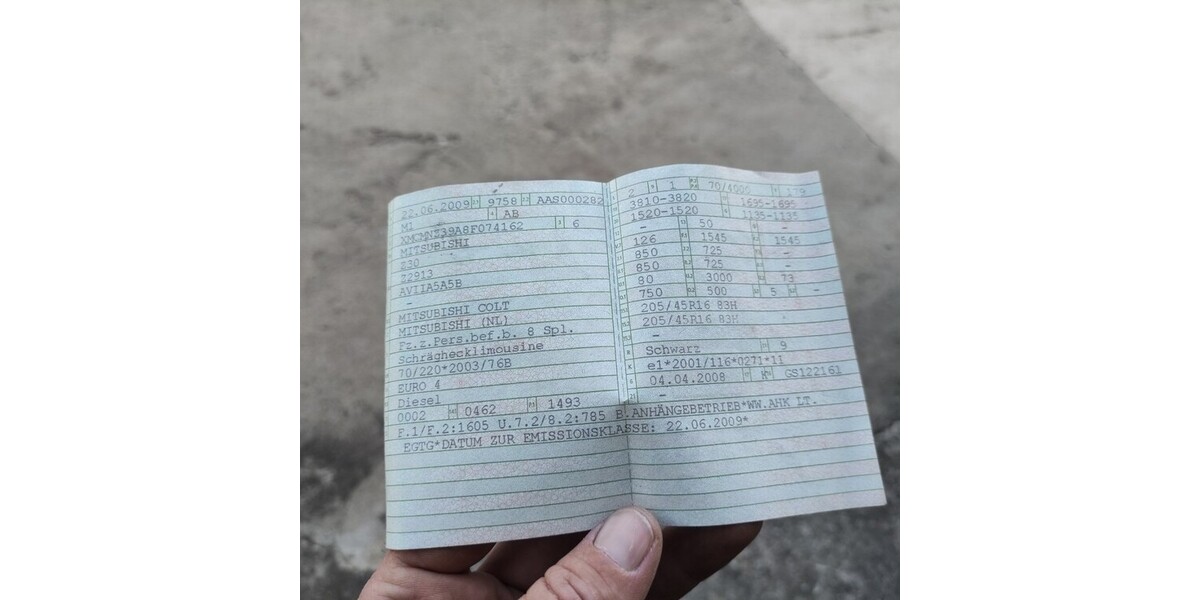 22.06.2009 9758 AAS000282
M1 AB
6
MITSUBISHI
Z30
Z2913
AVIIA5A5B
-
MITSUBISHI COLT
MITSUBISHI (NL)
Fz.z.Pers.bef.b. 8 Spl.
Schräghecklimousine
70/220*2003/76B
EURO 4
Diesel
0002 0462 1493
F.1/F.2:1605 U.7.2/8.2:785 B.ANHÄNGEBETRIEB*WW.AHK LT.
EGTG*DATUM ZUR EMISSIONSKLASSE: 22.06.2009*
2 1 70/4000 179
3810-3820 1695-1695
1520-1520 1135-1135
- 50 -
126 1545 1545
850 725 -
850 725 -
80 3000 73
750 500 5 -
205/45R16 83H
205/45R16 83H
-
Schwarz 9
e1*2001/116*0271*11
04.04.2008 K GS122161
-